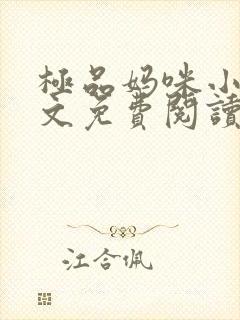 極品妈咪小
文免費閱讀
江合佩